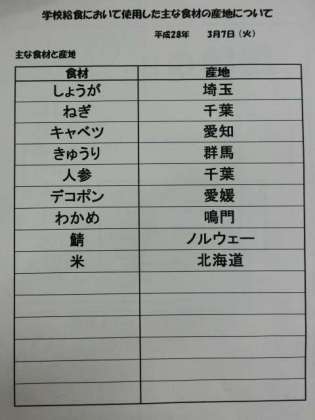 学校給食において使用した主な食材の産地について
平成28年 3月7日（火）
主な食材と産地
食材 産地
しょうが 埼玉
ねぎ 千葉
キャベツ 愛知
きゅうり 群馬
人参 千葉
デコポン 愛媛
わかめ 鳴門
鯖 ノルウェー
米 北海道